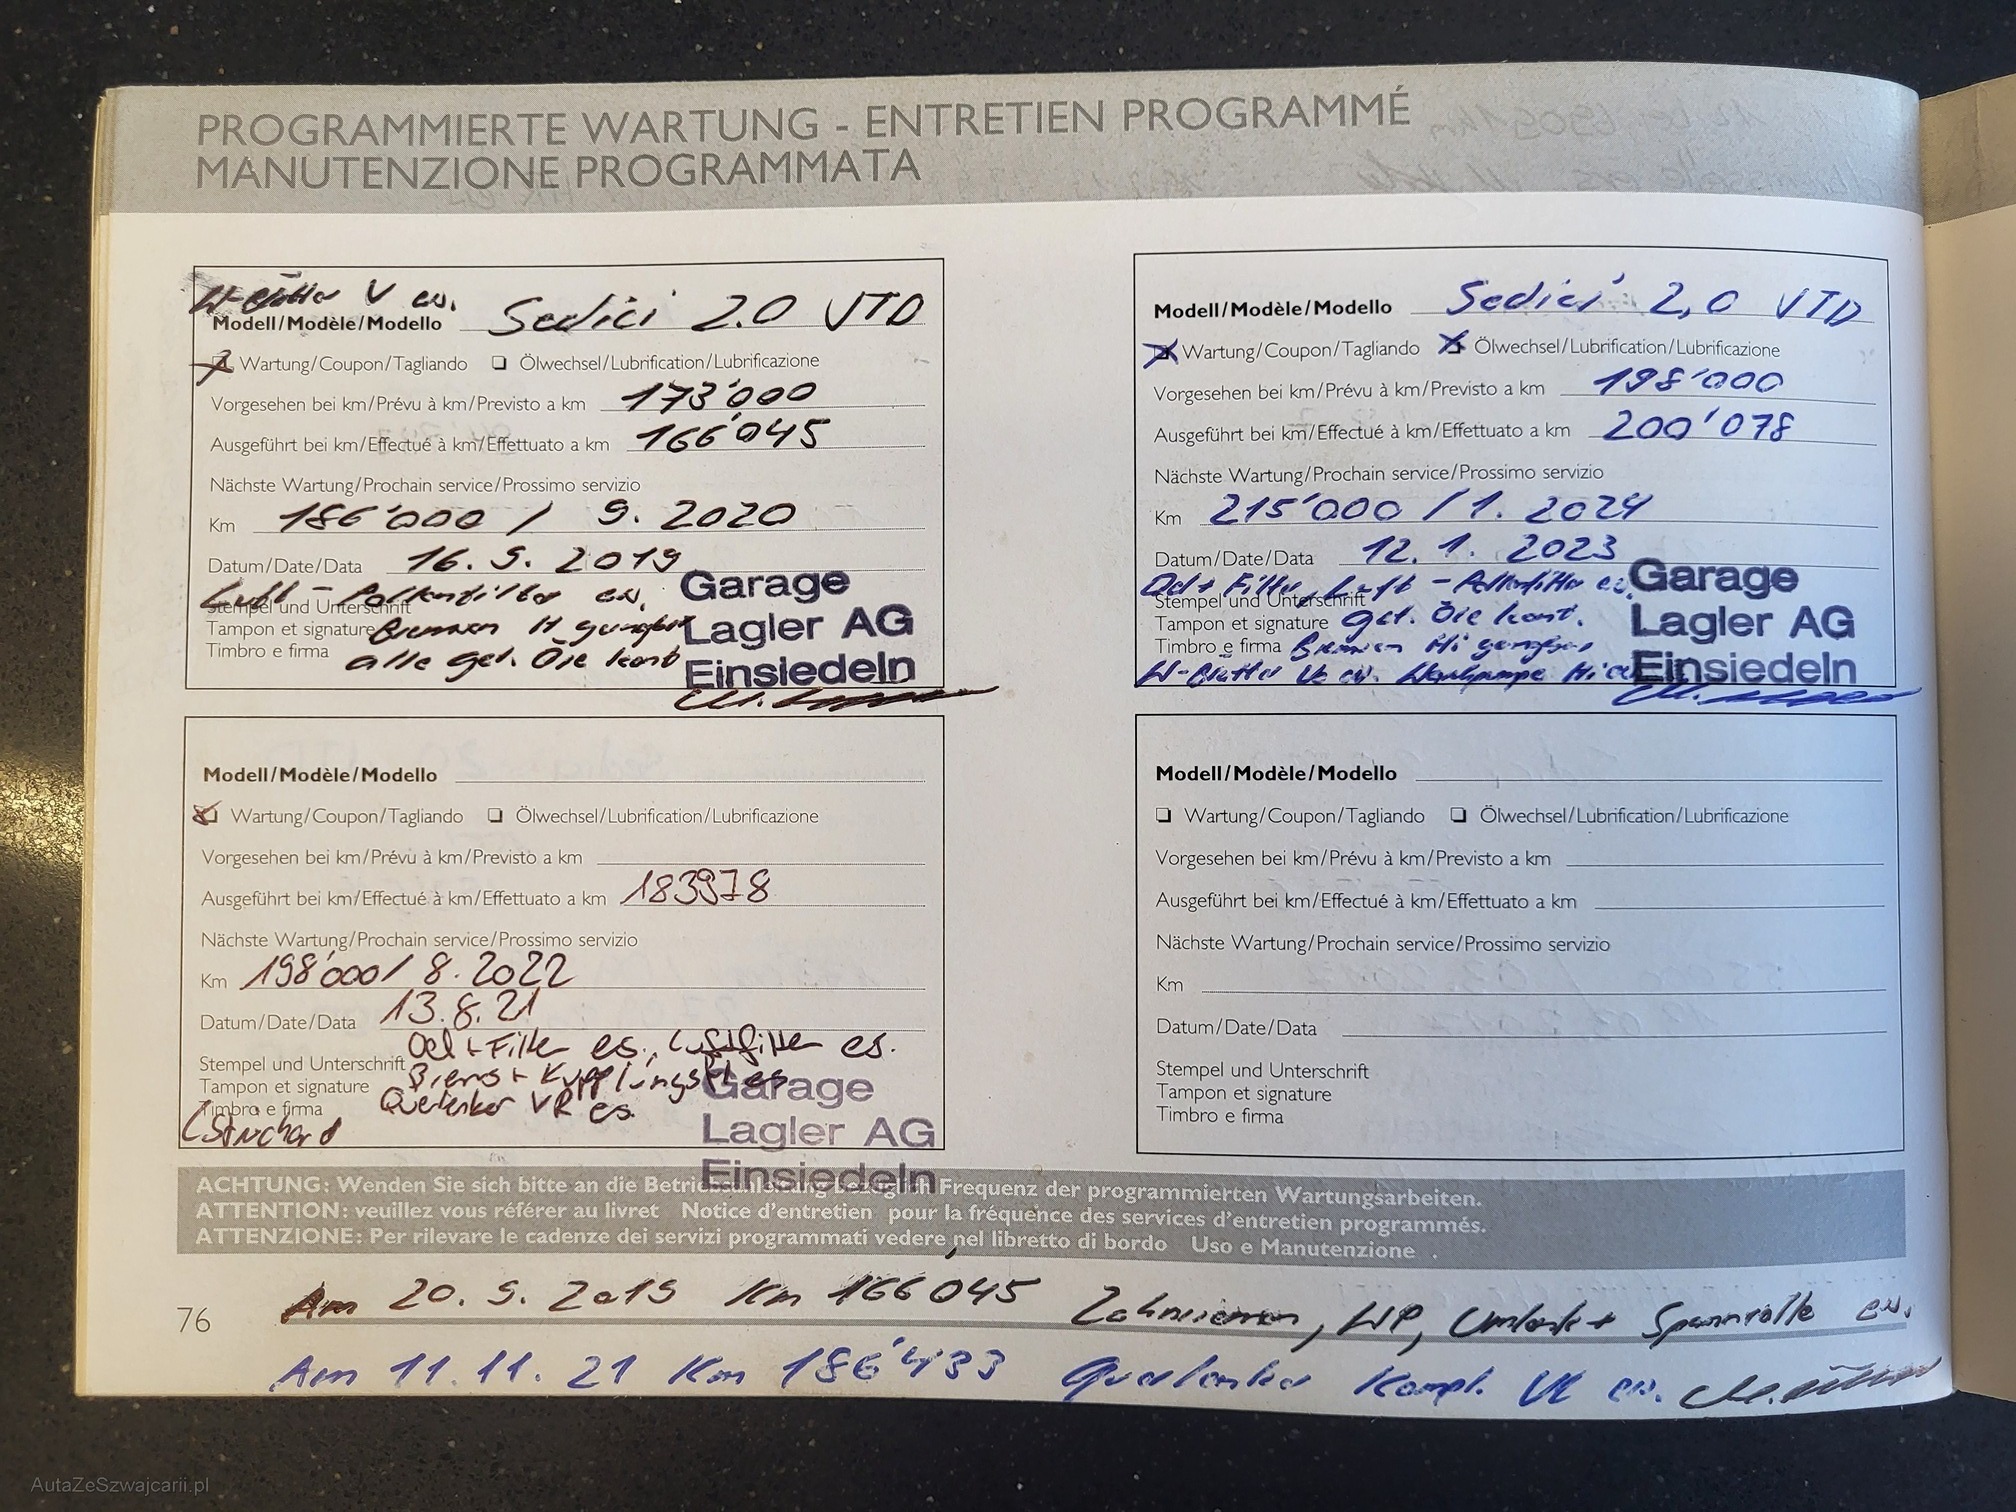 PROGRAMMIERTE WARTUNG - ENTRETIEN PROGRAMMÉ
MANUTENZIONE PROGRAMMATA
W-Blätter V es.
Modell/Modèle/Modello Sedici 2.0 JTD
Wartung/Coupon/Tagliando Ölwechsel/Lubrification/Lubrificazione
Vorgesehen bei km/Prévu à km/Previsto a km 173'000
Ausgeführt bei km/Effectué à km/Effettuato a km 166'045
Nächste Wartung/Prochain service/Prossimo servizio
Km 186'000 / 9. 2020
Datum/Date/Data 16. 9. 2019
Luft - Pollenfilter es.
Stempel und Unterschrift
Tampon et signature Bremsen H
Timbro e firma alle gel. Öle kont
Garage
Lagler AG
Einsiedeln
Modell/Modèle/Modello
Wartung/Coupon/Tagliando Ölwechsel/Lubrification/Lubrificazione
Vorgesehen bei km/Prévu à km/Previsto a km
Ausgeführt bei km/Effectué à km/Effettuato a km 183978
Nächste Wartung/Prochain service/Prossimo servizio
Km 198'000/ 8.2022
Datum/Date/Data 13.8.21
Oel + Filter es., Luftfilter es.
Stempel und Unterschrift
Tampon et signature
Timbro e firma Querlenker VR es.
Garage
Lagler AG
Einsiedeln
Modell/Modèle/Modello Sedici 2,0 JTD
Wartung/Coupon/Tagliando Ölwechsel/Lubrification/Lubrificazione
Vorgesehen bei km/Prévu à km/Previsto a km 198'000
Ausgeführt bei km/Effectué à km/Effettuato a km 200'078
Nächste Wartung/Prochain service/Prossimo servizio
Km 215'000 / 1. 2024
Datum/Date/Data 12. 1. 2023
Oel + Filter, Luft - Pollenfilter es.
Stempel und Unterschrift
Tampon et signature gel. Öle kont.
Timbro e firma Bremsen Hi
W-Blätter Vo es. Waschpumpe Hi es
Garage
Lagler AG
Einsiedeln
Modell/Modèle/Modello
Wartung/Coupon/Tagliando Ölwechsel/Lubrification/Lubrificazione
Vorgesehen bei km/Prévu à km/Previsto a km
Ausgeführt bei km/Effectué à km/Effettuato a km
Nächste Wartung/Prochain service/Prossimo servizio
Km
Datum/Date/Data
Stempel und Unterschrift
Tampon et signature
Timbro e firma
ACHTUNG: Wenden Sie sich bitte an die Betriebsanleitung bezüglich Frequenz der programmierten Wartungsarbeiten.
ATTENTION: veuillez vous référer au livret Notice d'entretien pour la fréquence des services d'entretien programmés.
ATTENZIONE: Per rilevare le cadenze dei servizi programmati vedere nel libretto di bordo Uso e Manutenzione .
Am 20. 9. 2019 Km 166045 Zahnriemen, WP, Umlenk + Spannrolle es.
76
Am 11.11. 21 Km 186'433 Querlenker kompl. VL es.
AutaZeSzwajcarii.pl